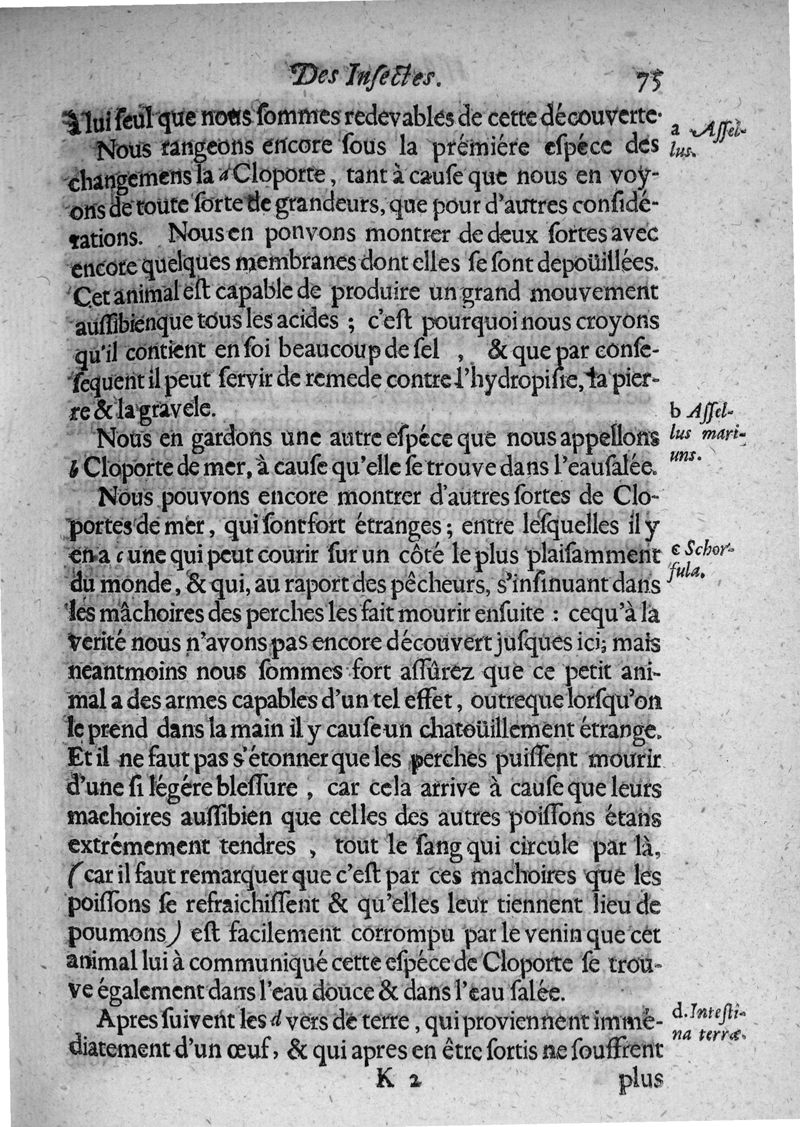 Des Insectes. 75
à lui seul que nous sommes redevables de cette découverte.
Nous rangeons encore sous la prémiére espéce des
changemens la a Cloporte, tant à cause que nous en voy-
ons de toute sorte de grandeurs, que pour d'autres considé-
rations. Nous en ponvons montrer de deux sortes avec
encore quelques membranes dont elles se sont depoüillées.
Cet animal est capable de produire un grand mouvement
aussibienque tous les acides ; c'est pourquoi nous croyons
qu'il contient en soi beaucoup de sel , & que par conse-
sequent il peut servir de remede contre l'hydropisie, la pier-
re & la gravele.
Nous en gardons une autre espéce que nous appellons
b Cloporte de mer, à cause qu'elle se trouve dans l'eau salée.
Nous pouvons encore montrer d'autres sortes de Clo-
portes de mer, qui sont fort étranges ; entre lesquelles il y
en a c une qui peut courir sur un côté le plus plaisamment
du monde, & qui, au raport des pêcheurs, s'insinuant dans
les mâchoires des perches les fait mourir ensuite : cequ'à la
verité nous n'avons pas encore découvert jusques ici; mais
neantmoins nous sommes fort assûrez que ce petit ani-
mal a des armes capables d'un tel effet, outreque lorsqu'on
le prend dans la main il y cause un chatoüillement étrange.
Et il ne faut pas s'étonner que les perches puissent mourir
d'une si légére blessure , car cela arrive à cause que leurs
machoires aussibien que celles des autres poissons étans
extrémement tendres , tout le sang qui circule par là,
(car il faut remarquer que c'est par ces machoires que les
poissons se refraichissent & qu'elles leur tiennent lieu de
poumons) est facilement corrompu par le venin que cet
animal lui à communiqué cette espéce de Cloporte se trou-
ve également dans l'eau douce & dans l'eau salée.
Apres suivent les d vers de terre, qui proviennent immé-
diatement d'un œuf, & qui apres en être sortis ne souffrent
K 2 plus
a Assel-
lus.
b Assel-
lus mari-
uns.
c Schor-
fula.
d. Intesti-
na terræ.